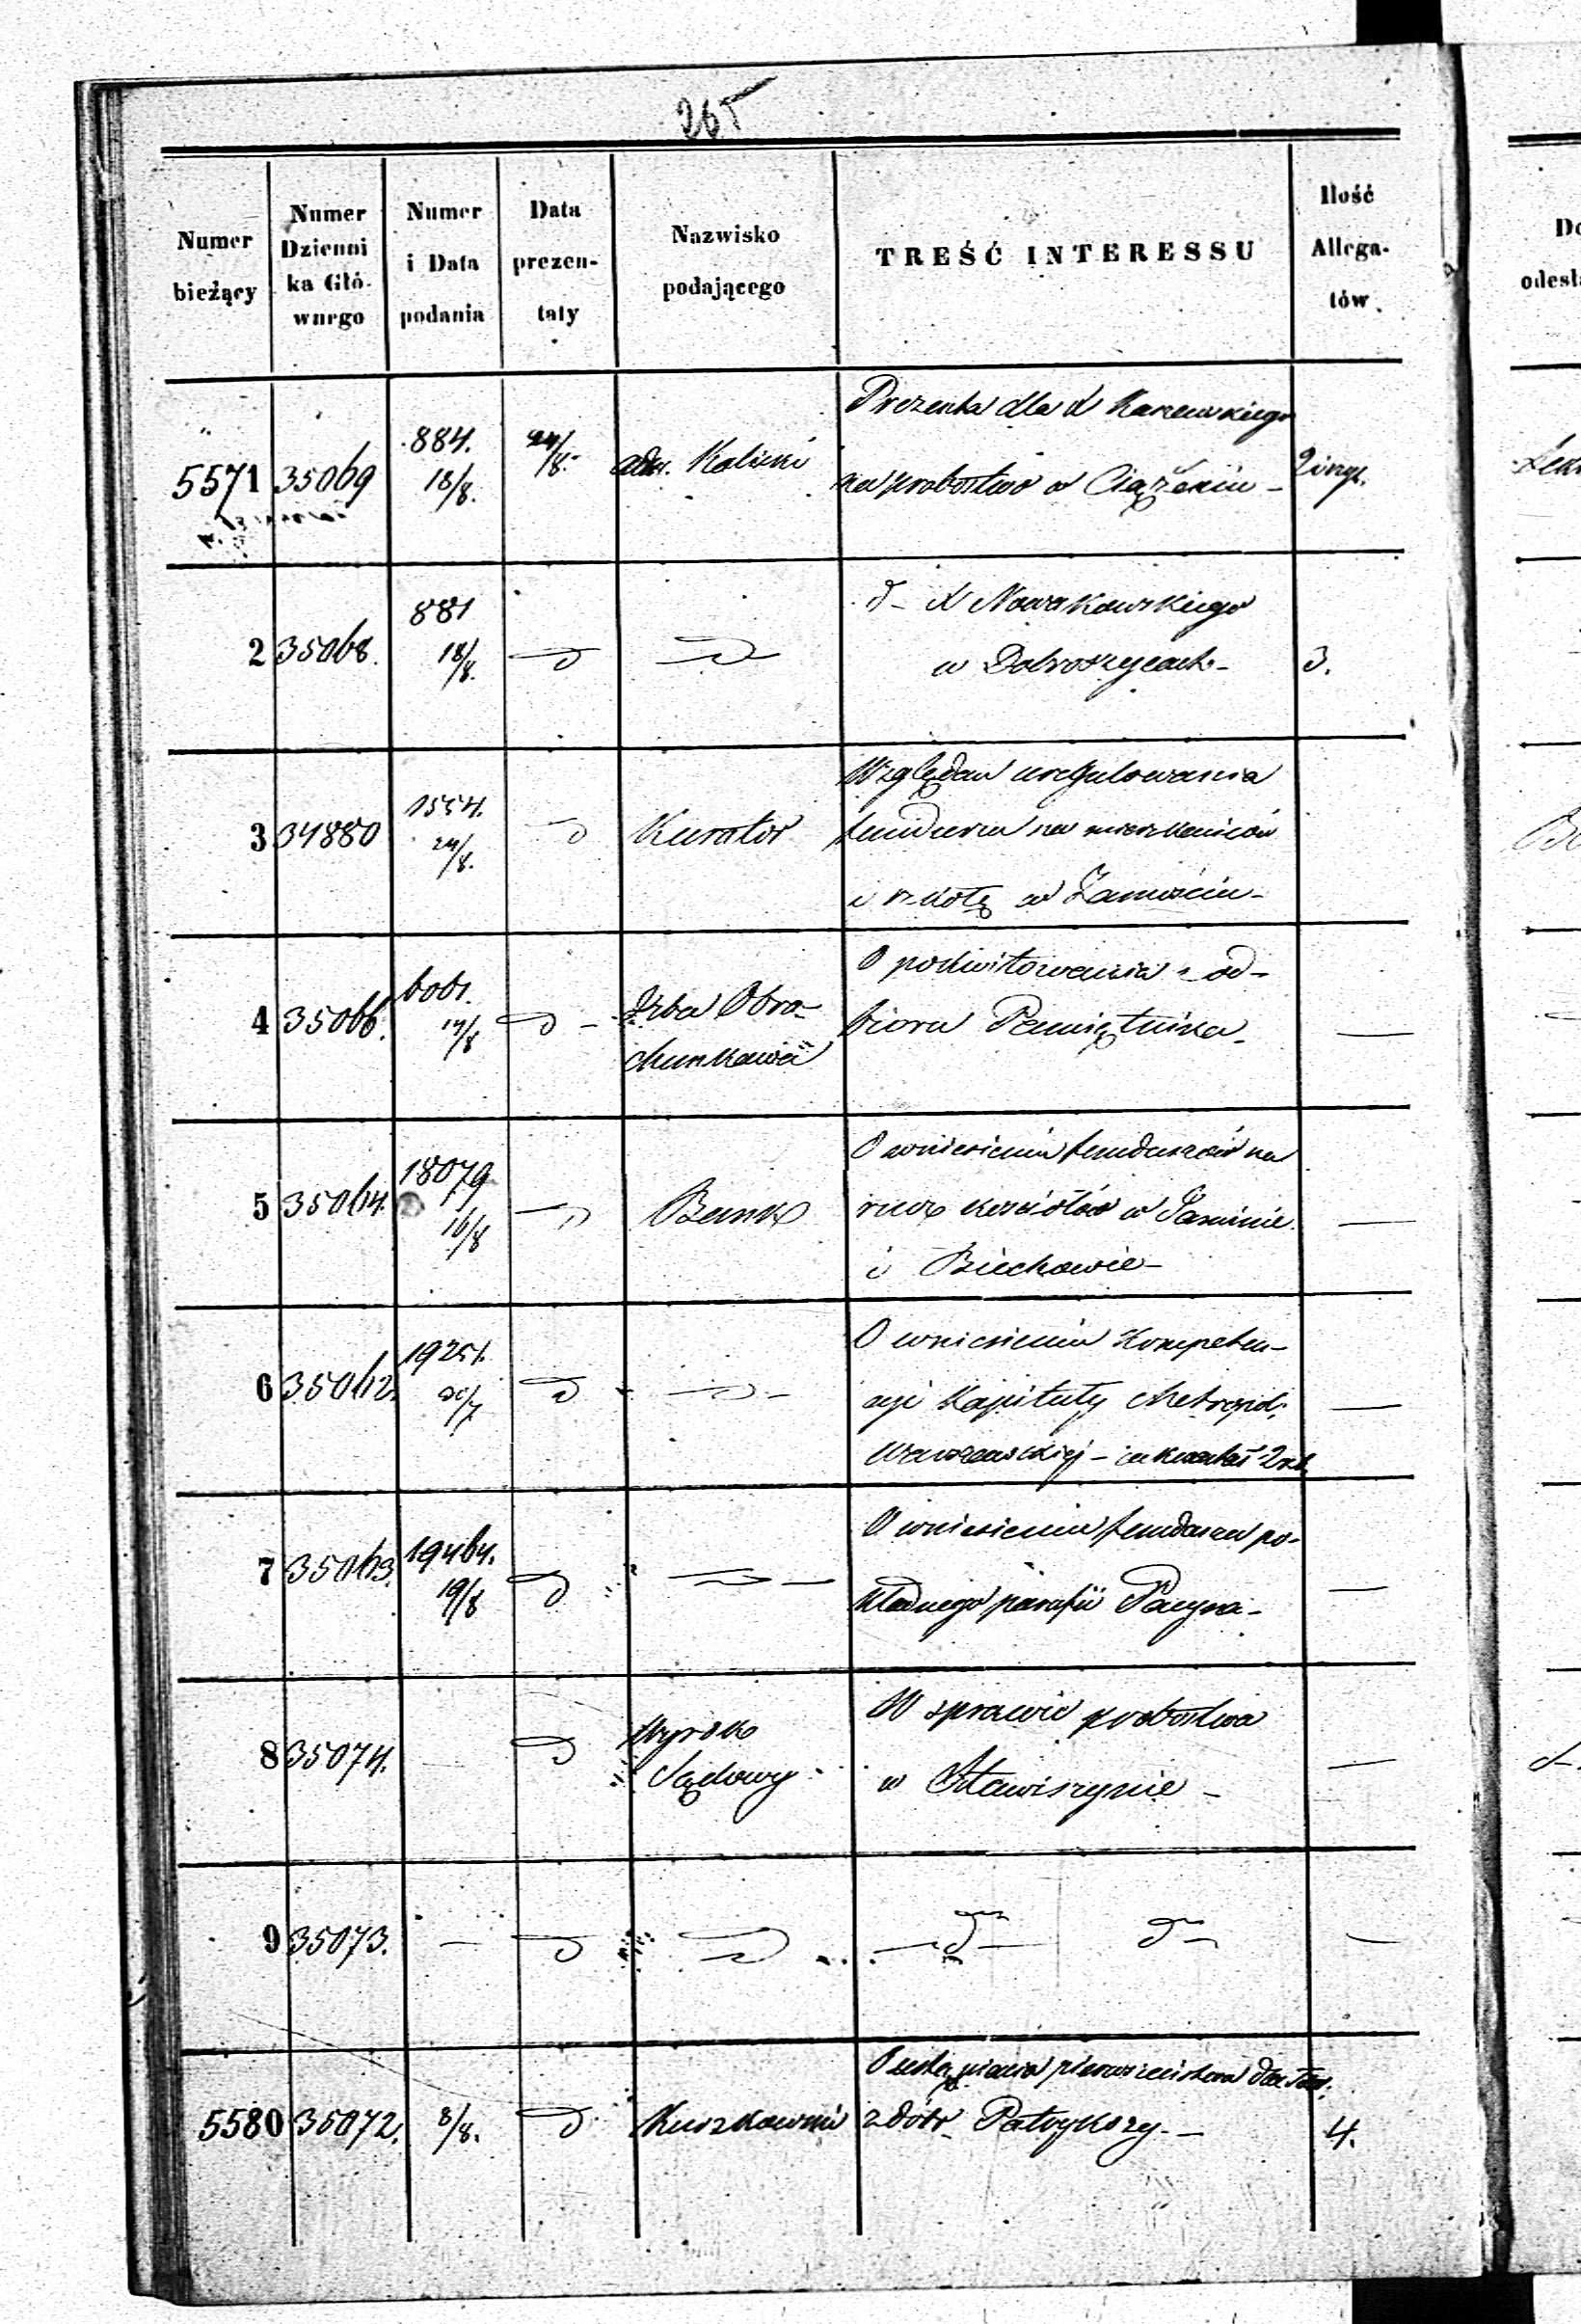 265
Numer bieżący | Numer Dzienni ka Głó- wnego | Numer i Data podania | Data prezen- taty | Nazwisko podającego | TREŚĆ INTERESSU | Ilość Allega- tów
5571 | 35069 | 884. 18/8. | 24/8. | adm. Kaliski | Prezenta dla X Karzewskiego
na probostwo w Ciążeniu - | 2 inny.
2 | 35068. | 881 18/8. | d | d | d - X Nowakowskiego
w Dobroszycach - | 3.
3 | 34880 | 1554. 24/8. | d | Kurator | Względem uregulowania
funduszu na mieszkańców
i szkołę w Zamościu -
4 | 35066. | 6061. 14/8 | d - | Izba Obra-
chunkowa | O pokwitowania z od-
bioru Pamiętnika. | —
5 | 35064. | 18079 16/8 | d | Bank | O wniesieniu funduszów na
rzecz kościołów w
i Biechowie - | —
6 | 35062. | 19251. 30/7 | d | d - | O wniesieniu Kompeten-
cyi Kapituły Metropol:
Warszawskiej - | —
7 | 35063. | 19464. 19/8 | d | d — | O wniesieniu funduszu po-
kładnego parafii Pacyna - | —
8 | 35074. | — | d | Wyrok
Sądowy | W sprawie probostwa
w Stawiszynie - | —
9 | 35073. | — | d | d | — d — d - | —
5580 | 35072. | 8/8. | d | Kuszkowski | O ustąpienia pierwszeństwa dla Tow.
z dóbr Patrykozy. — | 4.
Do
odesła